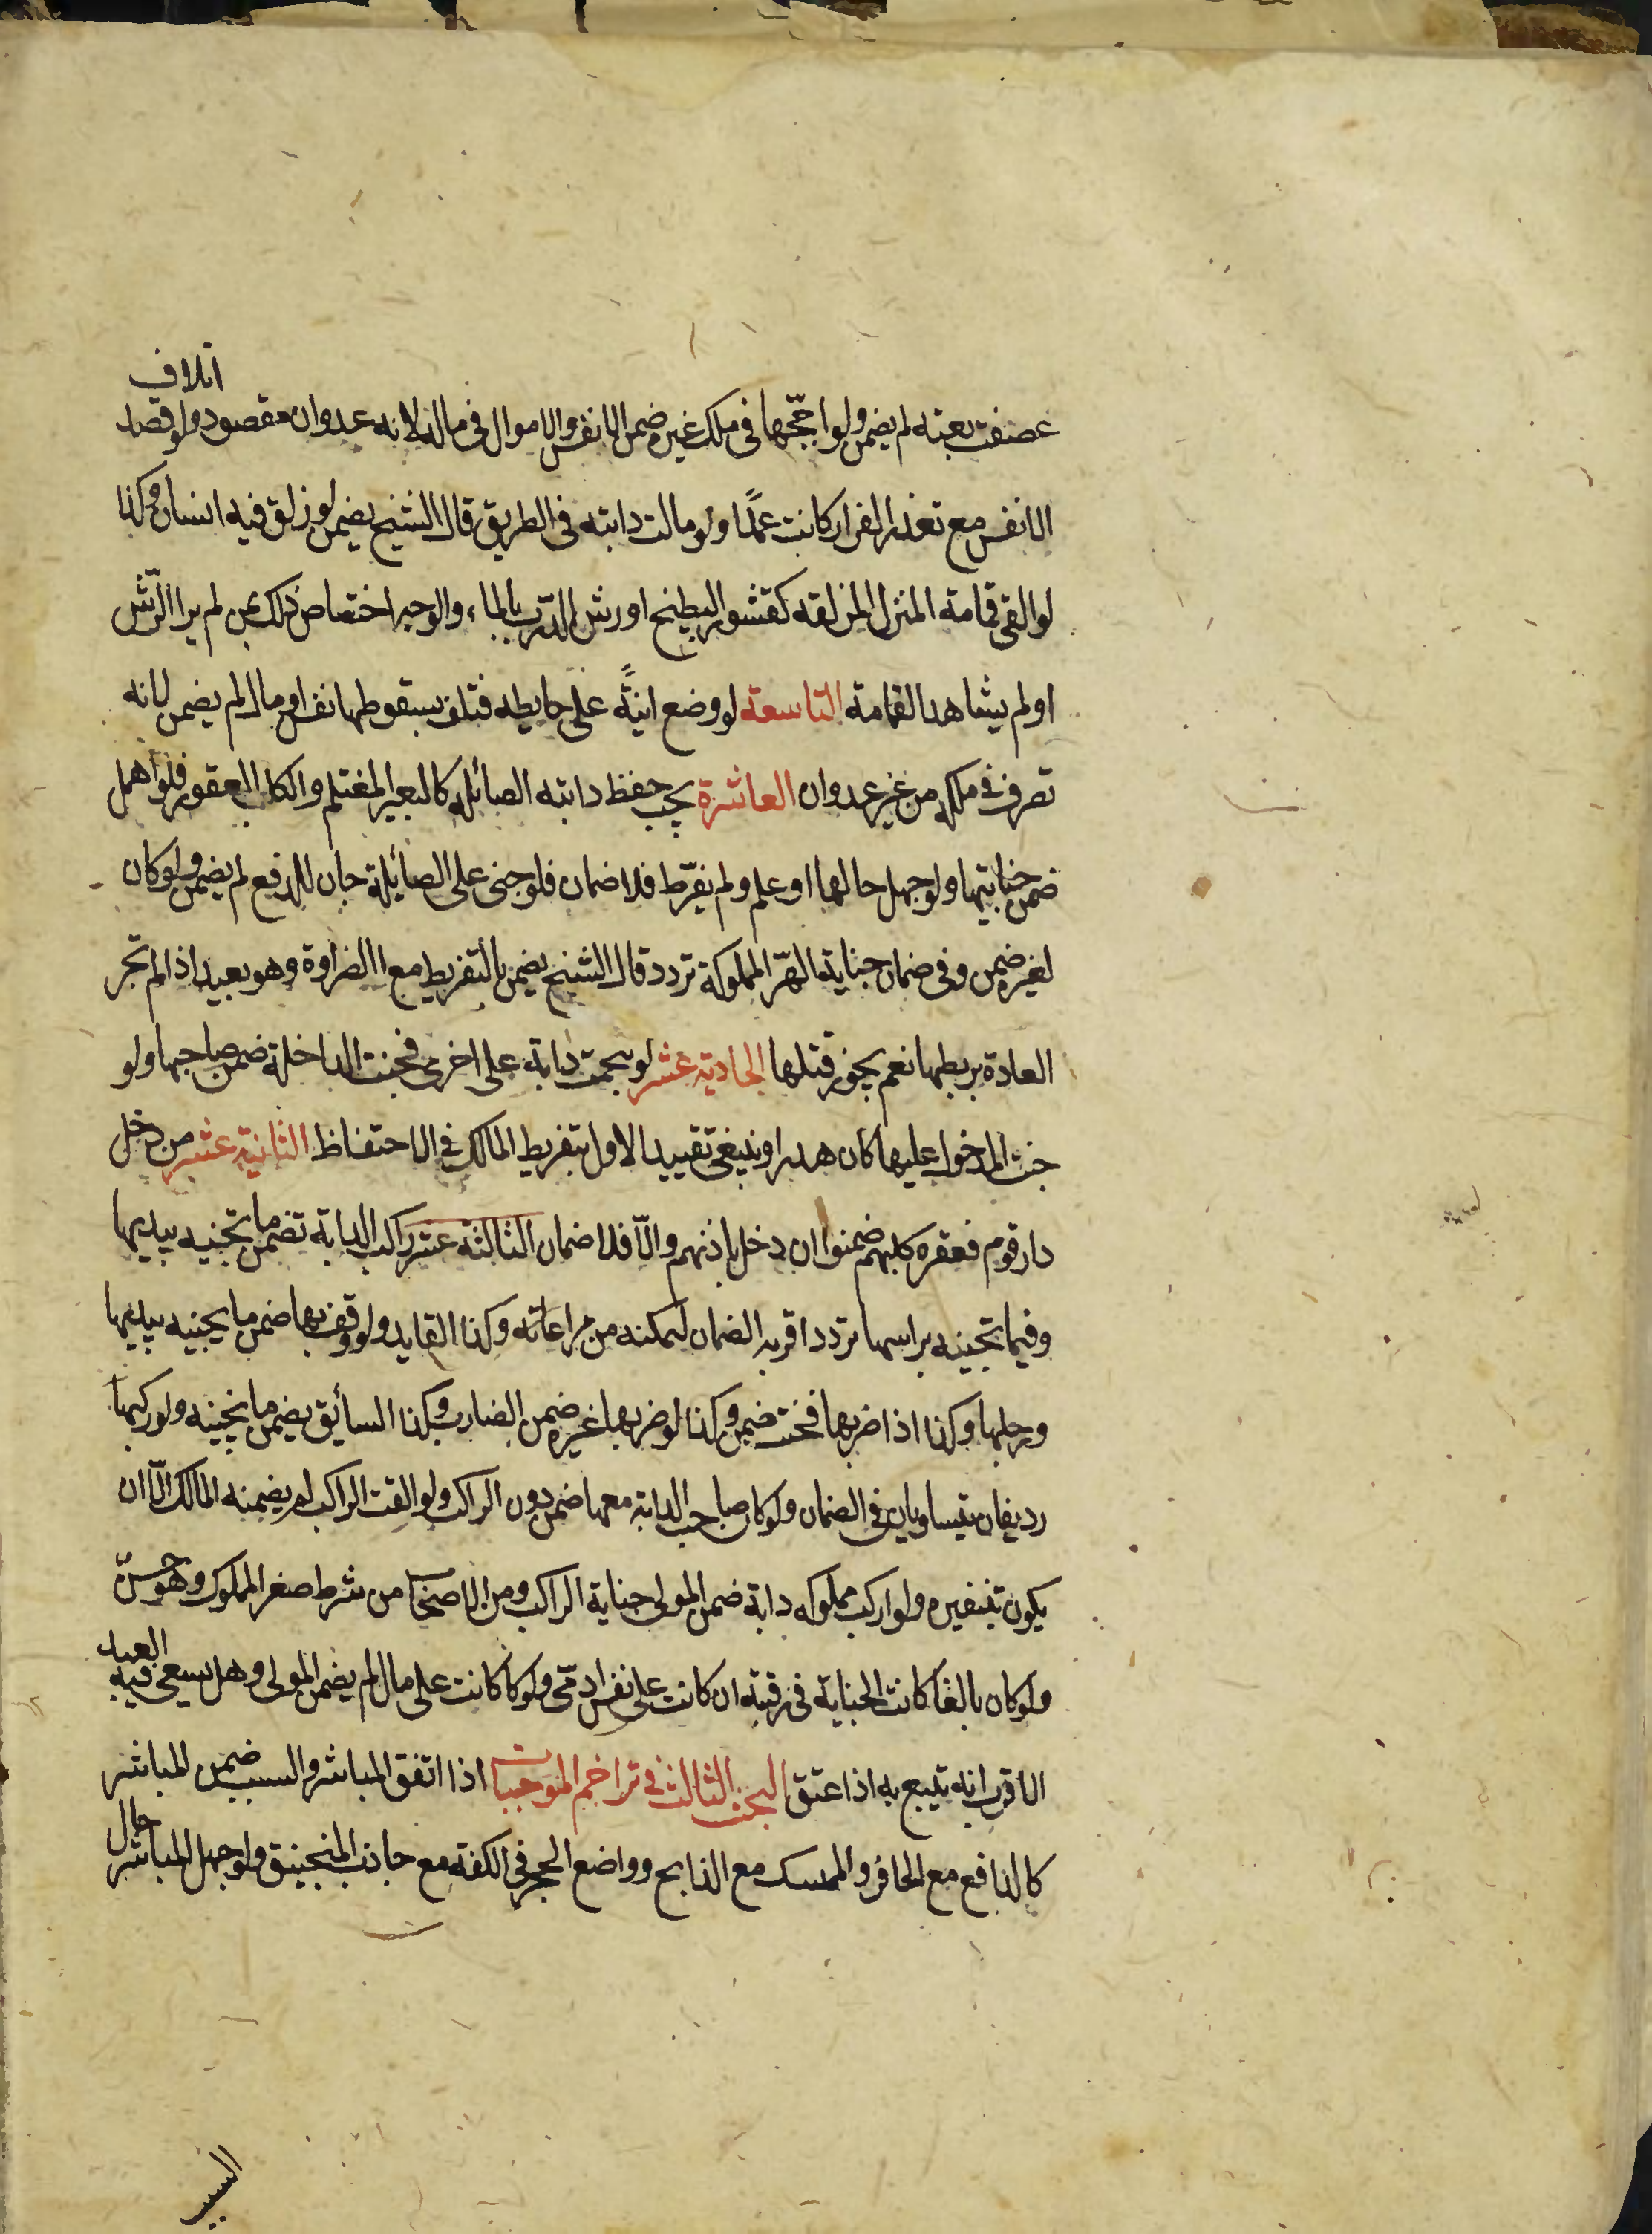 عصفت بغته لم يضمن ولو اججها في ملك غيره ضمن الانفس والاموال في ماله لانه عدوان مقصود ولو قصد اتلاف
الانفس مع تعذر الفرار كانت عمدًا ولو مالت دابته في الطريق قال الشيخ يضمن لو زلق فيه انسان وكذا
لو القى قمامة المنزل المزلقه كقشور البطيخ او رش الدرب بالماء، والوجه اختصاص ذلك بمن لم ير الرّش
او لم يشاهد القمامة التاسعة لو وضع انيةً على حايطه فتلف بسقوطها نفس او مال لم يضمن لانه
تصرف في ملكه من غير عدوان العاشرة يجب حفظ دابته الصائله كالبعير المغتلم والكلب العقور فلو اهمل
ضمن جنايتها ولو جهل حالها او علم ولم يفرّط فلا ضمان فلو جنى على الصائيلة جان للدفع لم يضمن ولو كان
لغيره ضمن وفي ضمان جناية الهرّ المملوكة تردد قال الشيخ يضمن بالتفريط مع الضراوة وهو بعيد اذ لم تجر
العادة بربطها نعم يجوز قتلها الحادية عشر لو هجمت دابة على اخرى فجنت الداخلة ضمن صاحبها ولو
جنت المدخول عليها كان هدرا وينبغى تقييد الاول بتفريط المالك في الاحتفاظ الثانية عشر من دخل
دار قوم فعقره كلبهم ضمنوا ان دخل باذنهم والّا فلا ضمان الثالثة عشر راكب الدابة تضمن ما تجنيه بيديها
وفيما تجنيه براسها تردد اقربه الضمان لتمكنه من مراعاته وكذا القايد ولو وقف بها ضمن ما يجنيه بيديها
ورجليها وكذا اذا ضربها فجنت ضمن وكذا لو ضربها غيره ضمن الضارب وكذا السأيق يضمن ما يجنيه ولو ركبها
رديفان تيساويان في الضمان ولو كان صاحب الدابة معها ضمن دون الراكب ولو القت الراكب لم يضمنه المالك الّا ان
يكون بتنفيره ولو اركب مملوكه دابة ضمن المولى جناية الراكب ومن الاصحاب من شرط صغر المملوك وهو حسنّ
ولو كان بالغا كانت الجناية في رقبته ان كانت على نفس ادمّى ولو كا كانت على مال لم يضمن المولى وهل يسعى فيه العبد
الاقرب انه يتبع به اذا عتق البحث الثالث في تراحم الموجبات اذا اتفق المباشر والسبب ضمن المباشر
كالدافع مع الحافر والممسك مع الذابح وواضع الحجر في الكفة مع جاذب المنجنيق ولو جهل المباشر حال
السبب